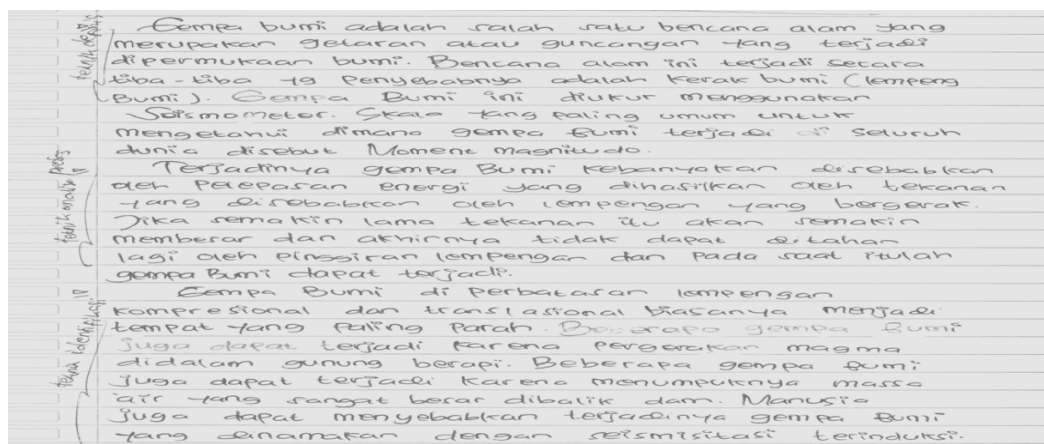 Gempa bumi adalah salah satu bencana alam yang
merupakan getaran atau guncangan yang terjadi
dipermukaan bumi. Bencana alam ini terjadi secara
tiba-tiba yg penyebabnya adalah kerak bumi (lempeng
Bumi). Gempa Bumi ini diukur menggunakan
Seismometer. Skala yang paling umum untuk
mengetahui dimana gempa Bumi terjadi di seluruh
dunia disebut Moment magnitudo.
Terjadinya gempa Bumi kebanyakan disebabkan
oleh pelepasan energi yang dihasilkan oleh tekanan
yang disebabkan oleh lempengan yang bergerak.
Jika semakin lama tekanan itu akan semakin
membesar dan akhirnya tidak dapat ditahan
lagi oleh pinggiran lempengan dan pada saat itulah
gempa Bumi dapat terjadi.
Gempa Bumi di perbatasan lempengan
kompresional dan translasional biasanya menjadi
tempat yang paling parah. Beberapa gempa Bumi
juga dapat terjadi karena pergerakan magma
didalam gunung berapi. Beberapa gempa Bumi
juga dapat terjadi karena menumpuknya massa
air yang sangat besar dibalik dam. Manusia
juga dapat menyebabkan terjadinya gempa Bumi
yang dinamakan dengan seismisitasi terinduksi.
teknik
teknik
teknik identifikasi